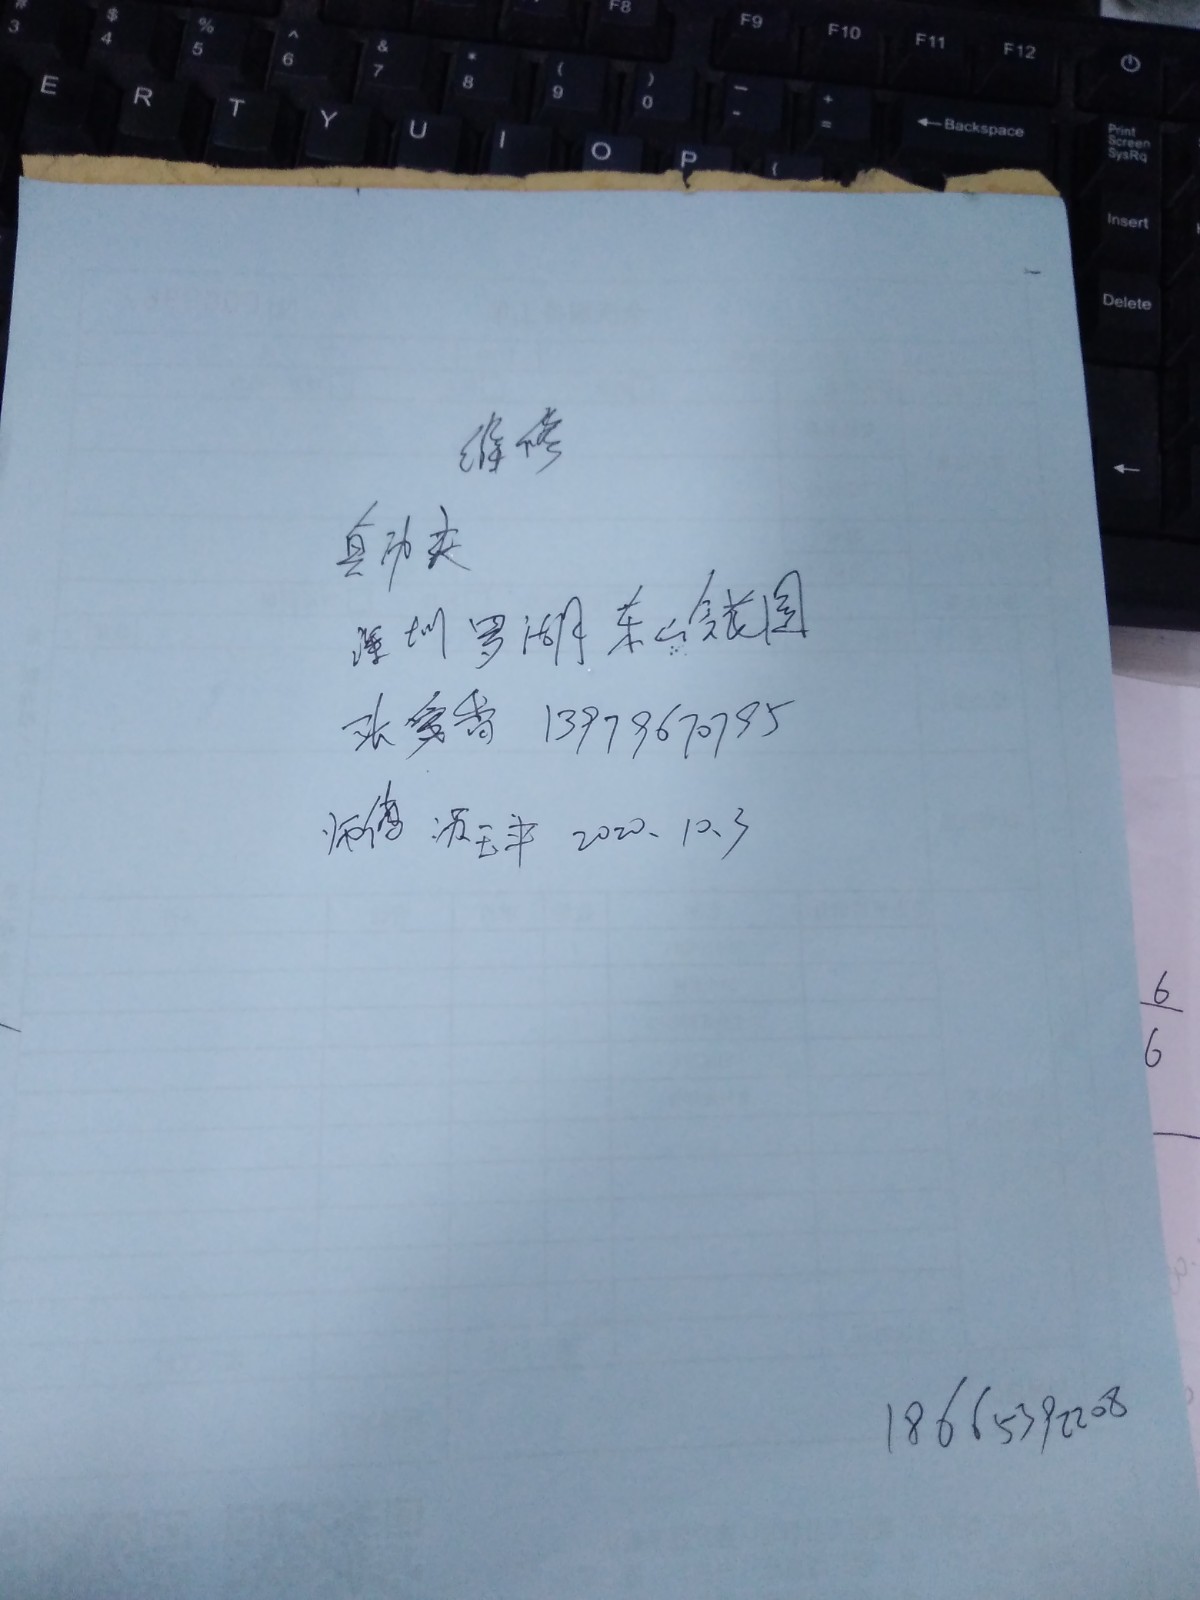 # $ % ^ & * ( ) — +
3 4 5 6 7 8 9 0 - =
F8 F9 F10 F11 F12
E R T Y U I O P {
←Backspace
Print
Screen
SysRq
Insert
Delete
←
维修
真功夫
深圳罗湖东山宾花园
张爱香 13979670795
师傅 汤玉平 2020.10.3
6
6
18665392208